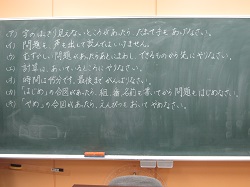 (ア) 字のはっきり見えないところがあったら、だまって手をあげなさい。
(イ) 問題を、声を出して読んではいけません。
(ウ) むずかしい問題があったらあとにまわし、できるものから先にやりなさい。
(エ) 計算は、あいているところにやりなさい。
(オ) 時間は45分です。最後までがんばりなさい。
(カ) 「はじめ」の合図があったら、組、番、名前を書いてから問題をはじめなさい。
(キ) 「やめ」の合図があったら、えんぴつをおいてやめなさい。